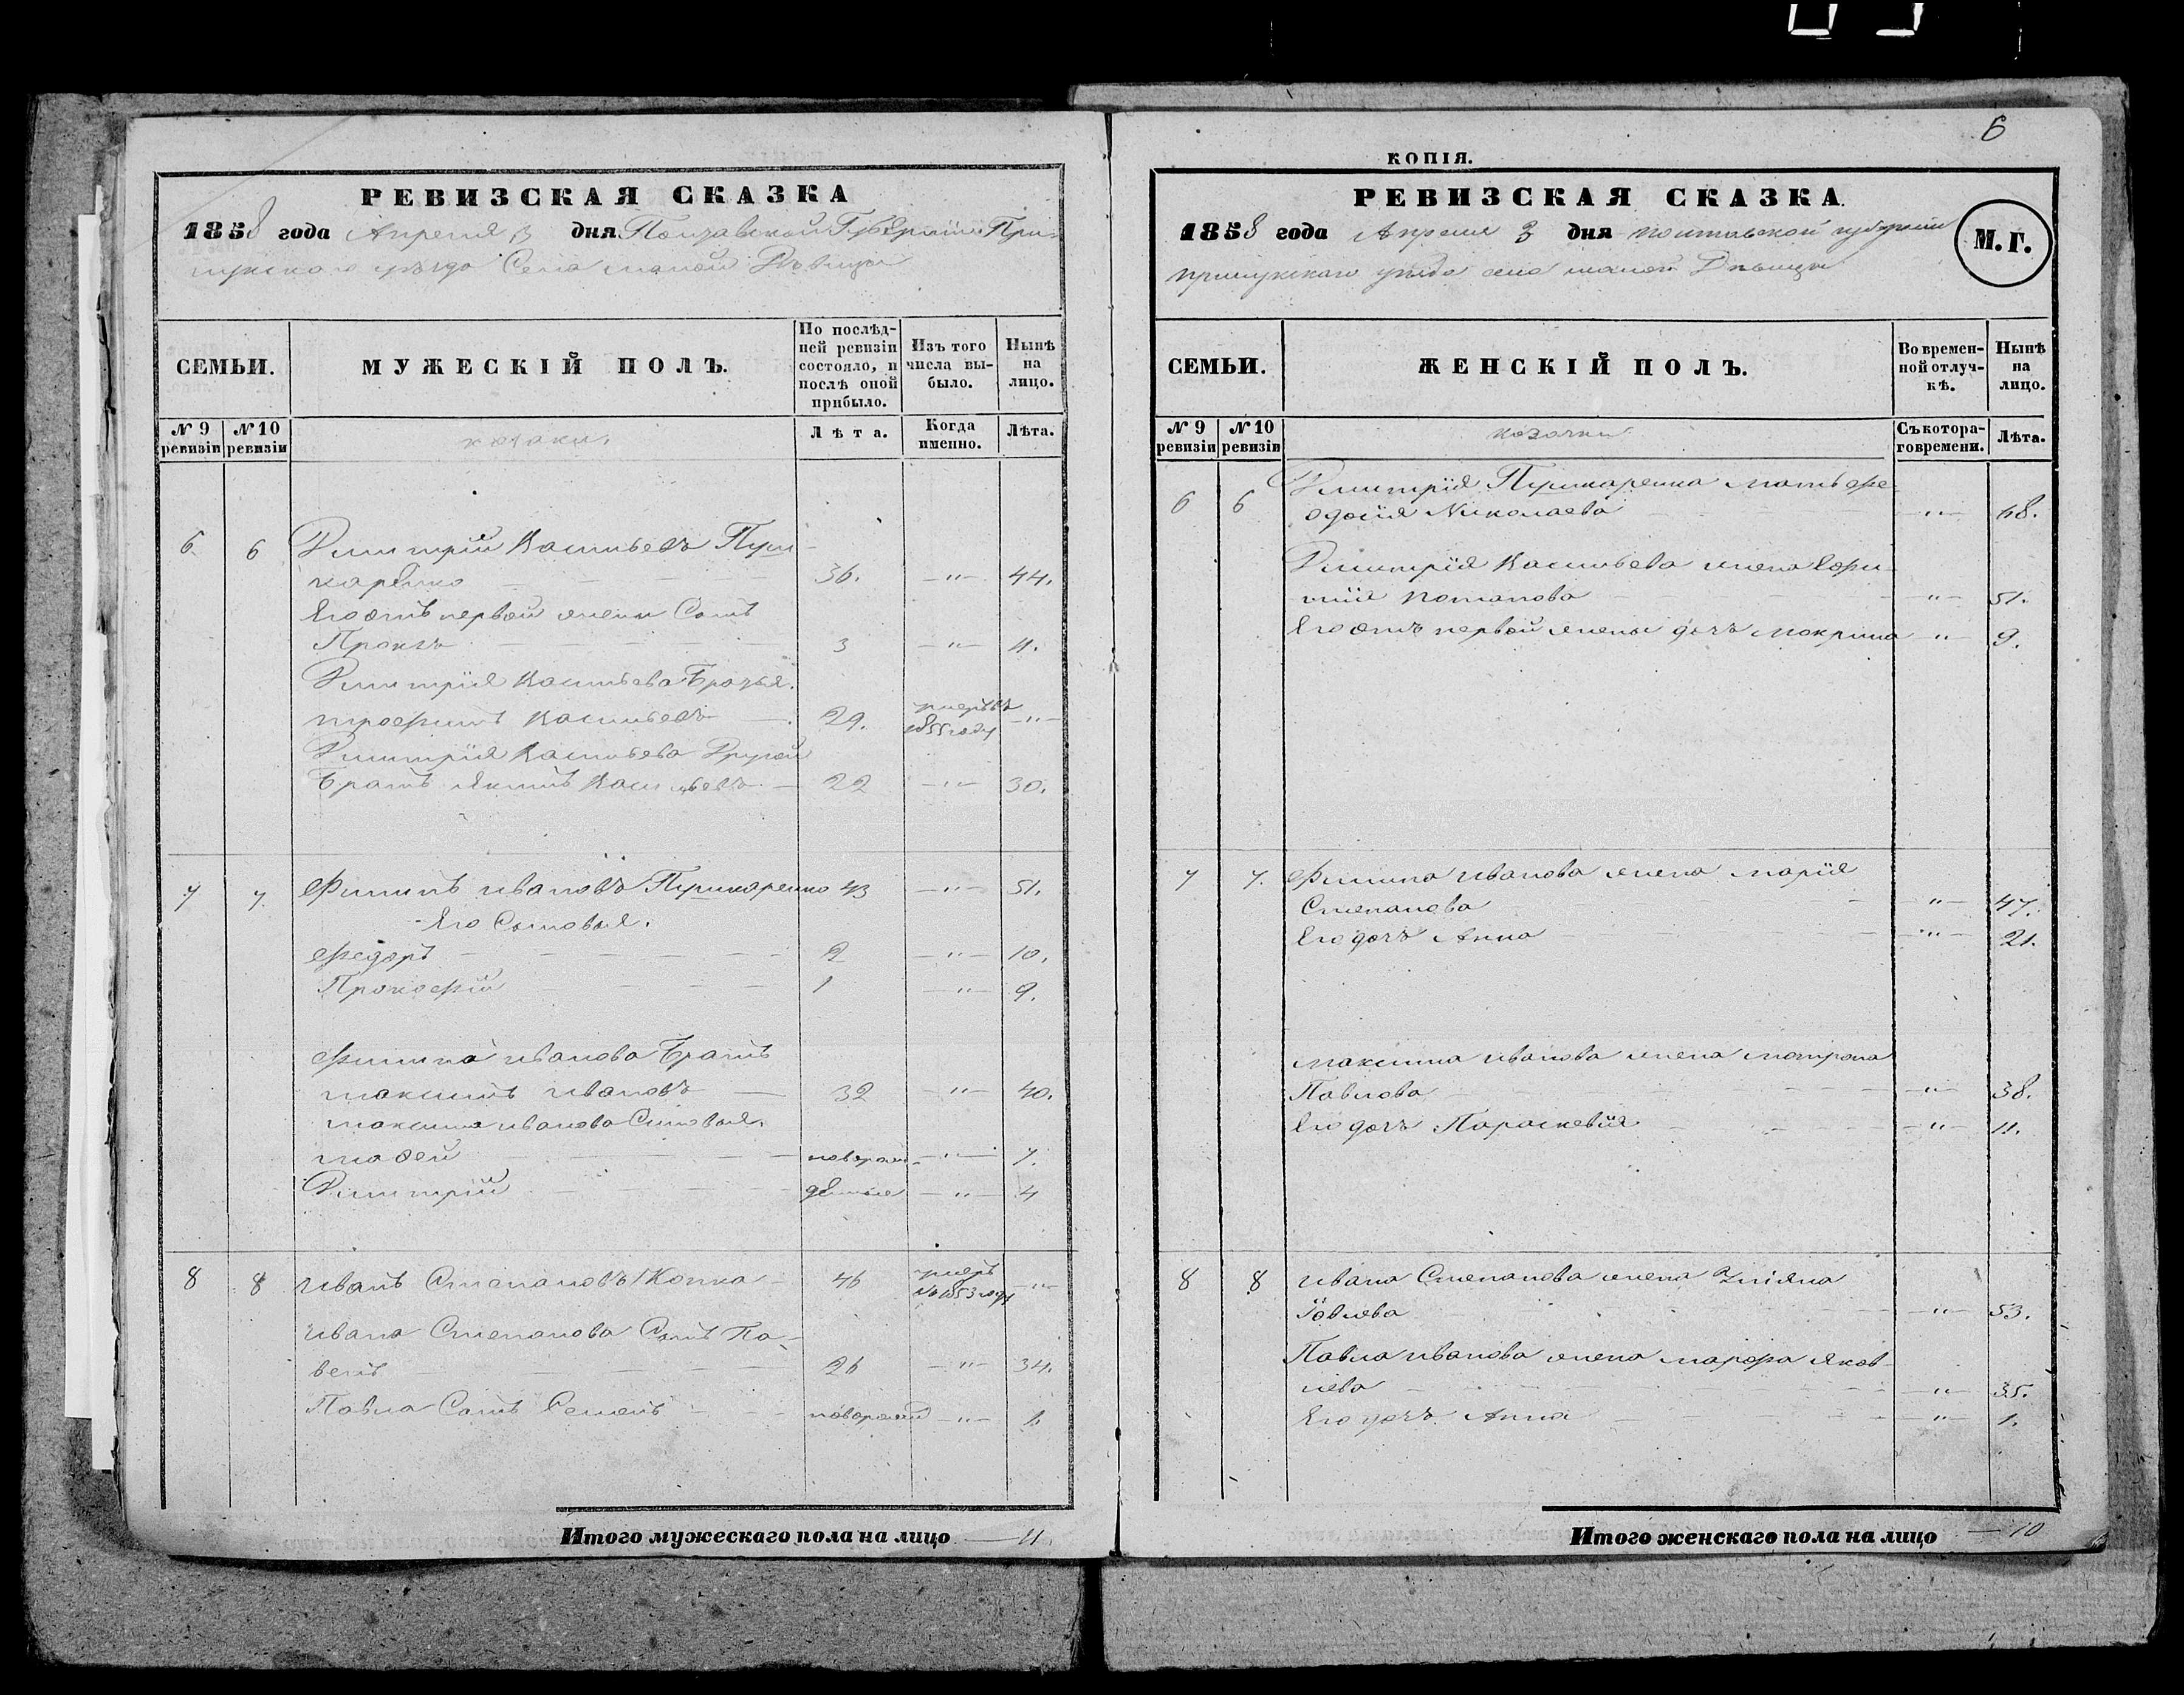 6
РЕВИЗСКАЯ СКАЗКА
1858 года Апреля 3 дня Полтавской Губерніи При-
лукского уѣзда Села малой Дѣвицы
СЕМЬИ.
МУЖЕСКІЙ ПОЛЪ.
По послѣд-
ней ревизіи
состояло, и
послѣ оной
прибыло.
Изъ того
числа вы-
было.
Нынѣ
на
лицо.
№ 9
ревизіи
№ 10
ревизіи
козаки.
Лѣта.
Когда
именно.
Лѣта.
6 6 Димитрій Васильевъ Пуш-
каренко 36. —"— 44.
Его отъ первой жены Сынъ
Прокопъ 3 —"— 11.
Димитрія Васильева Братья.
трофимъ Васильевъ 29. умеръ въ 1855 году —"—
Димитрія Васильева Другой
Братъ Якимъ Васильевъ 22 —"— 30.
7 7. Филипъ Ивановъ Пушкаренко 43 —"— 51.
Его Сыновья.
Федоръ 2 —"— 10.
Прокофій 1 —"— 9.
Филипа Иванова Братъ
максимъ Ивановъ 32 —"— 40.
максима Иванова Сыновья.
Фадей новорож- —"— 7.
Димитрій денные —"— 4
8 8 Иванъ Степановъ Копка 46 умеръ въ 1853 году —"—
Ивана Степанова Сынъ Па-
велъ 26 —"— 34.
Павла Сынъ Семенъ новорожд —"— 1.
Итого мужескаго пола на лицо — 11.
КОПІЯ.
РЕВИЗСКАЯ СКАЗКА.
1858 года Апреля 3 дня полтавской губерніи
прилукскаго уѣзда села малой Дѣвицы
М. Г.
СЕМЬИ.
ЖЕНСКІЙ ПОЛЪ.
Во времен-
ной отлуч-
кѣ.
Нынѣ
на
лицо.
№ 9
ревизіи
№ 10
ревизіи
козачки
Съ котора-
го времени.
Лѣта.
6 6 Димитрія Пушкаренка мать Фе-
одосія Николаева —"— 68.
Димитрія Васильева жена Евфи-
мія Потапова —"— 51.
Его отъ первой жены дочь мокрина —"— 9.
7 7. Филипа Иванова жена марія
Степанова —"— 47.
Его дочь Анна —"— 21.
максима Иванова жена мотрона
Павлова —"— 38.
Его дочь Параскевія —"— 11.
8 8 Ивана Степанова жена Уліяна
Іовлева —"— 53.
Павла Иванова жена марфа Яков-
лева —"— 35.
Его дочь Анна —"— 1.
Итого женскаго пола на лицо — 10